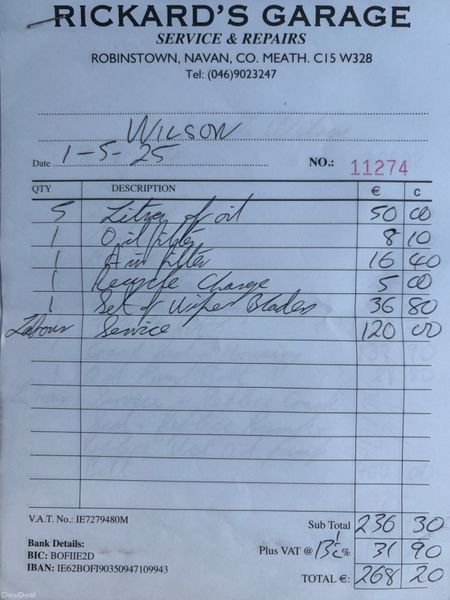 RICKARD'S GARAGE
SERVICE & REPAIRS
ROBINSTOWN, NAVAN, CO. MEATH. C15 W328
Tel: (046)9023247
WILSON
Date 1-5-25 NO.: 11274
QTY DESCRIPTION € C
5 Litres of oil 50 00
1 Oil filter 8 10
1 Air filter 16 40
1 Recycle Charge 5 00
1 Set of Wiper Blades 36 80
Labour Service 120 00
V.A.T. No.: IE7279480M
Sub Total 236 30
Bank Details:
BIC: BOFIIE2D
Plus VAT @ 13½% 31 90
IBAN: IE62BOFI90350947109943
TOTAL €: 268 20
DoneDeal